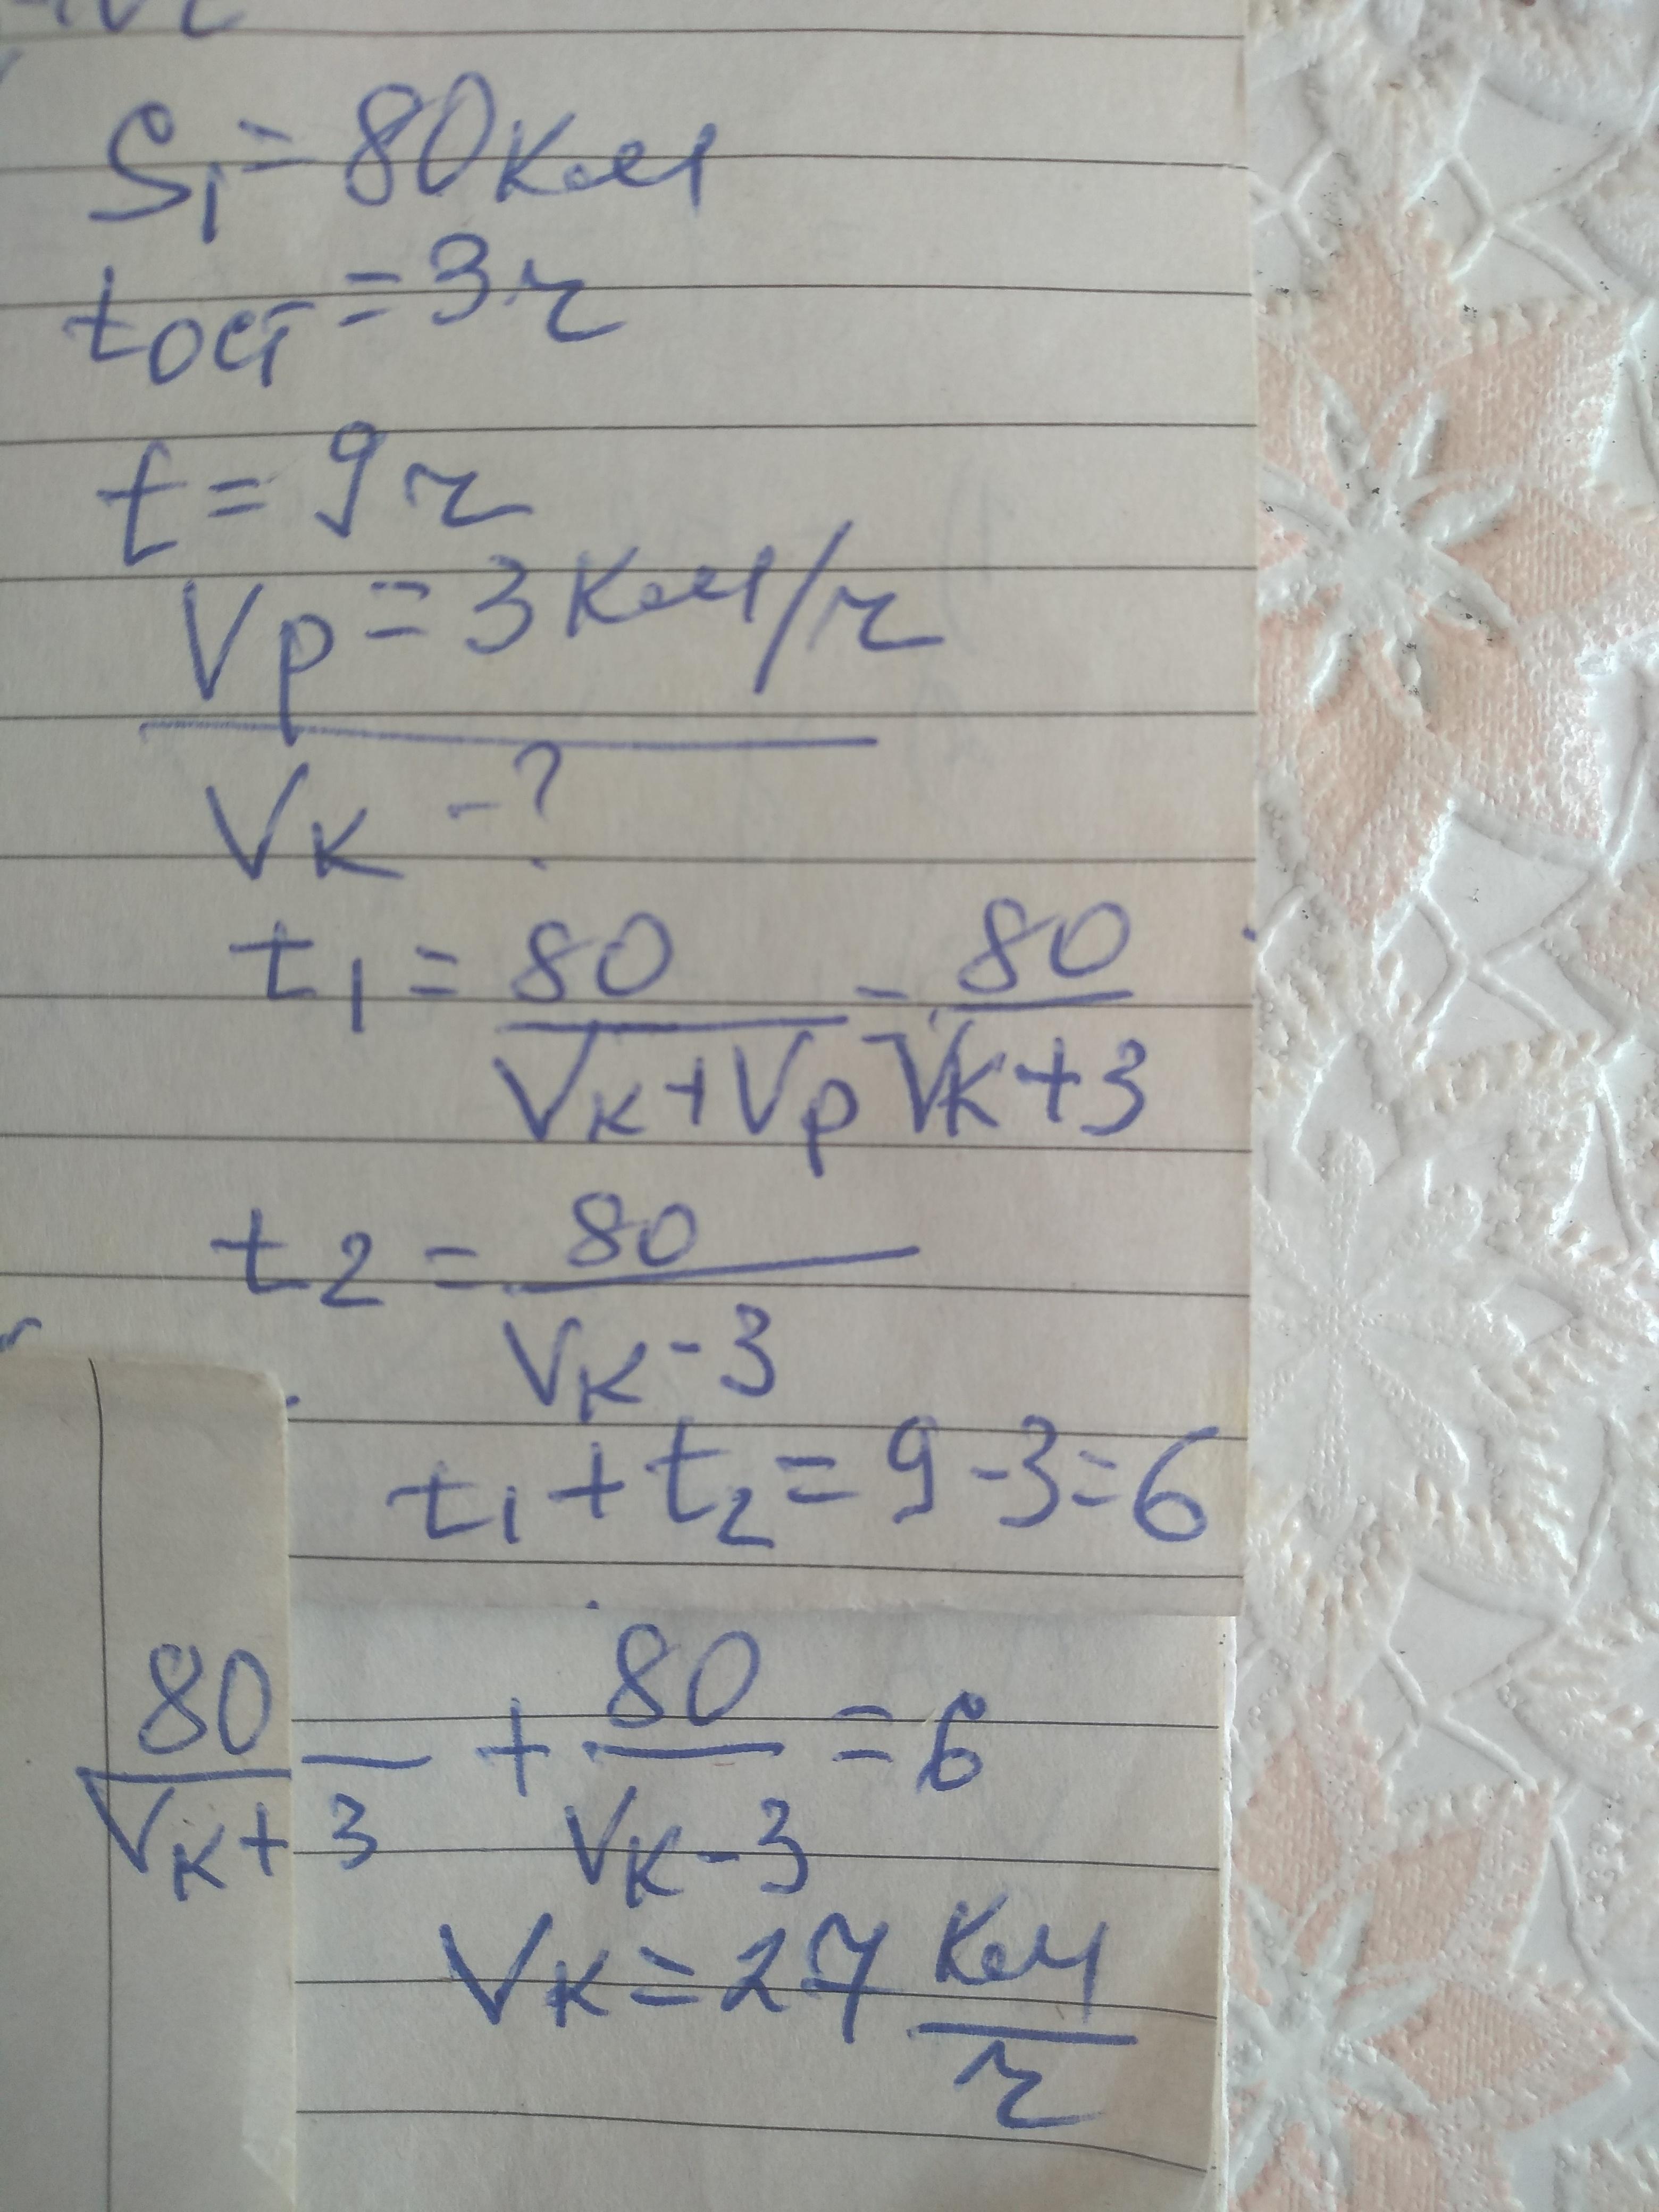 S₁ = 80 км
tост = 3 ч
t = 9 ч
Vр = 3 км/ч
Vк - ?
t₁ = 80/(Vк + Vр) = 80/(Vк + 3)
t₂ = 80/(Vк - 3)
t₁ + t₂ = 9 - 3 = 6
80/(Vк + 3) + 80/(Vк - 3) = 6
Vк = 27 км/ч